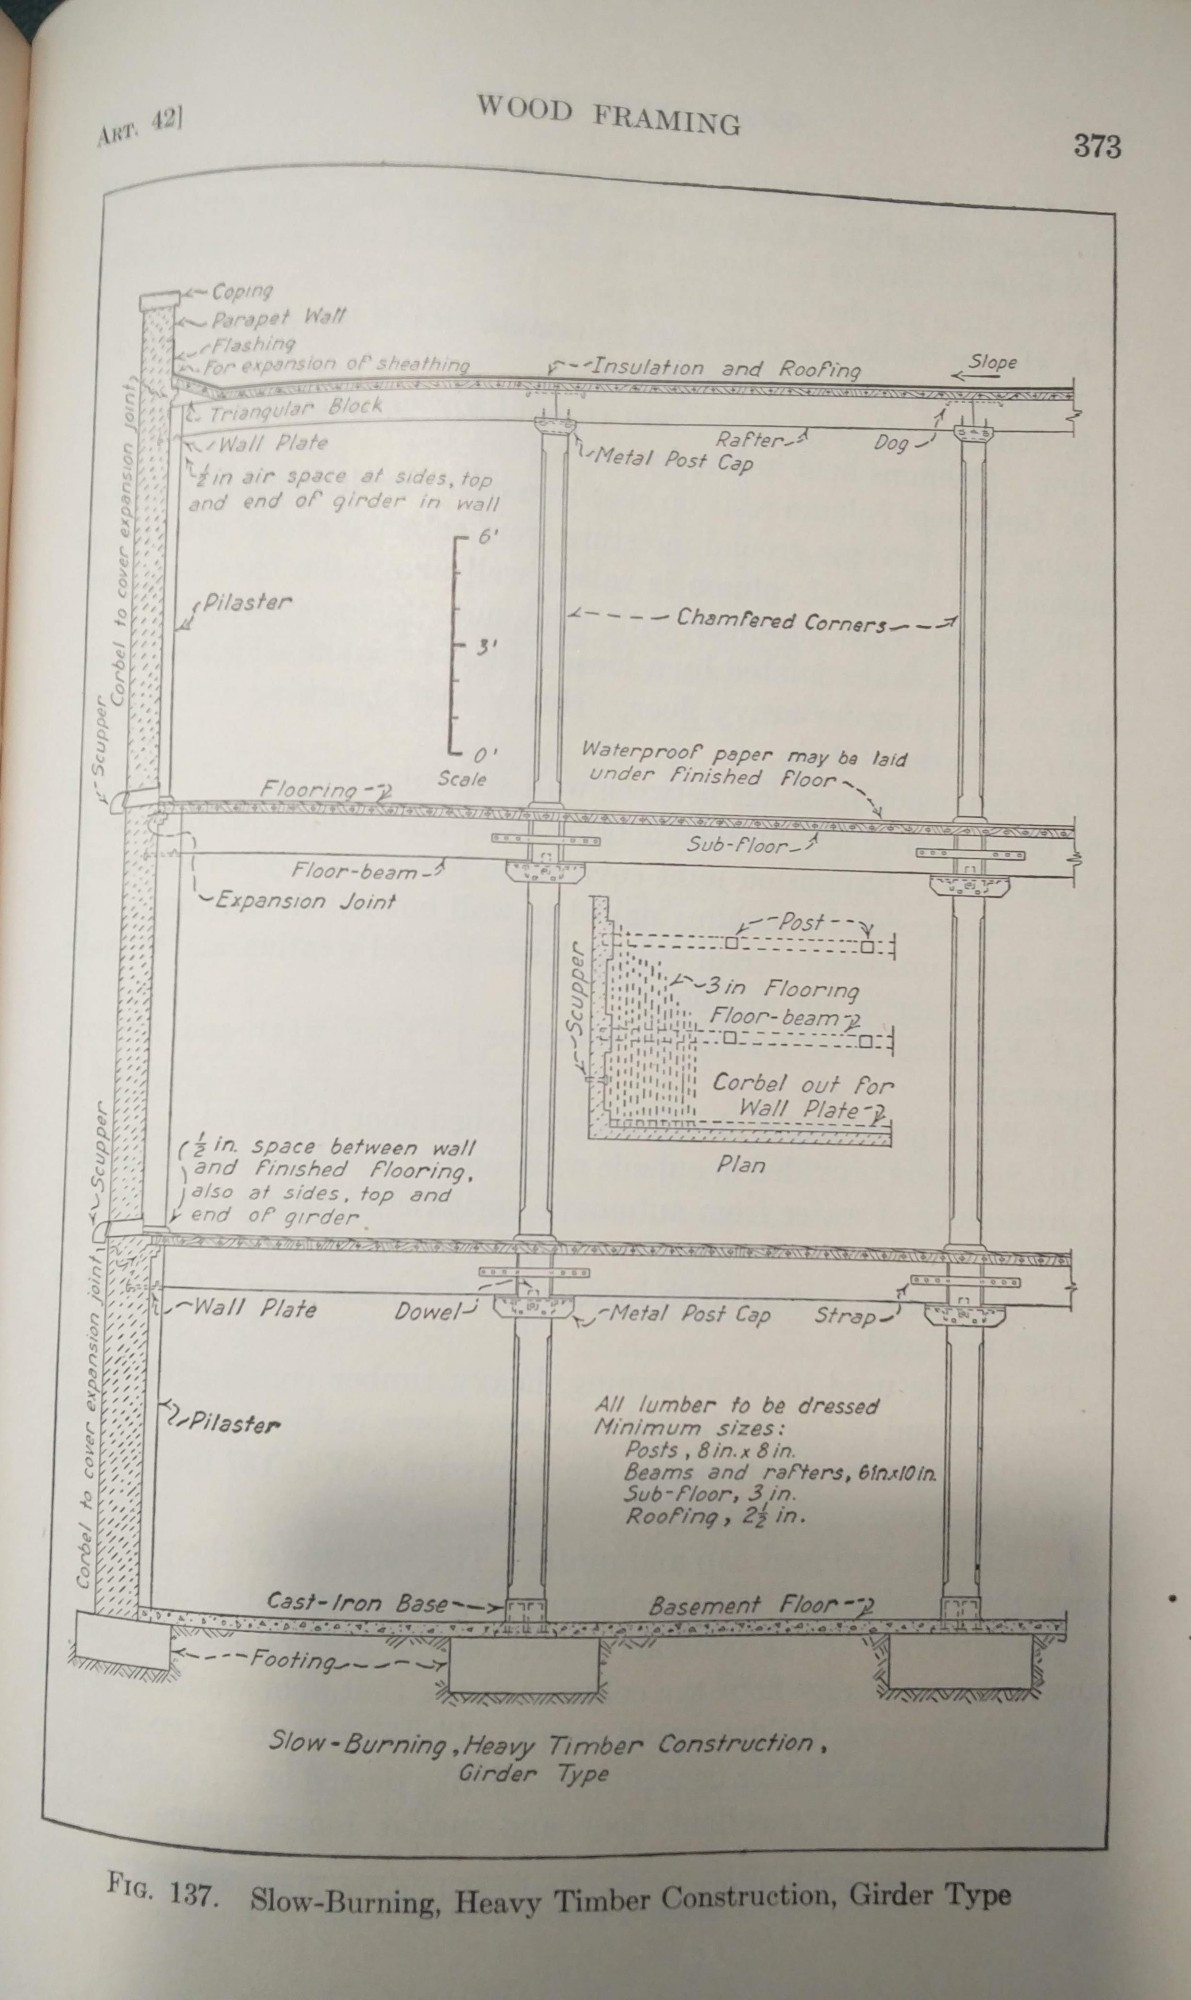 ART. 42]
WOOD FRAMING
373
Coping
Parapet Wall
Flashing
For expansion of sheathing
Insulation and Roofing
Slope
Triangular Block
Wall Plate
Rafter
Dog
Metal Post Cap
½ in air space at sides, top
and end of girder in wall
Corbel to cover expansion joint
6'
3'
0'
Scale
Pilaster
Chamfered Corners
Scupper
Waterproof paper may be laid
under finished floor
Flooring
Sub-floor
Floor-beam
Expansion Joint
Post
Scupper
3 in Flooring
Floor-beam
Corbel out for
Wall Plate
Plan
Scupper
½ in. space between wall
and finished flooring,
also at sides, top and
end of girder.
Wall Plate
Dowel
Metal Post Cap
Strap
Corbel to cover expansion joint
Pilaster
All lumber to be dressed
Minimum sizes:
Posts, 8 in. x 8 in.
Beams and rafters, 6in.x10in.
Sub-floor, 3 in.
Roofing, 2½ in.
Cast-Iron Base
Basement Floor
Footing
Slow-Burning, Heavy Timber Construction,
Girder Type
FIG. 137. Slow-Burning, Heavy Timber Construction, Girder Type